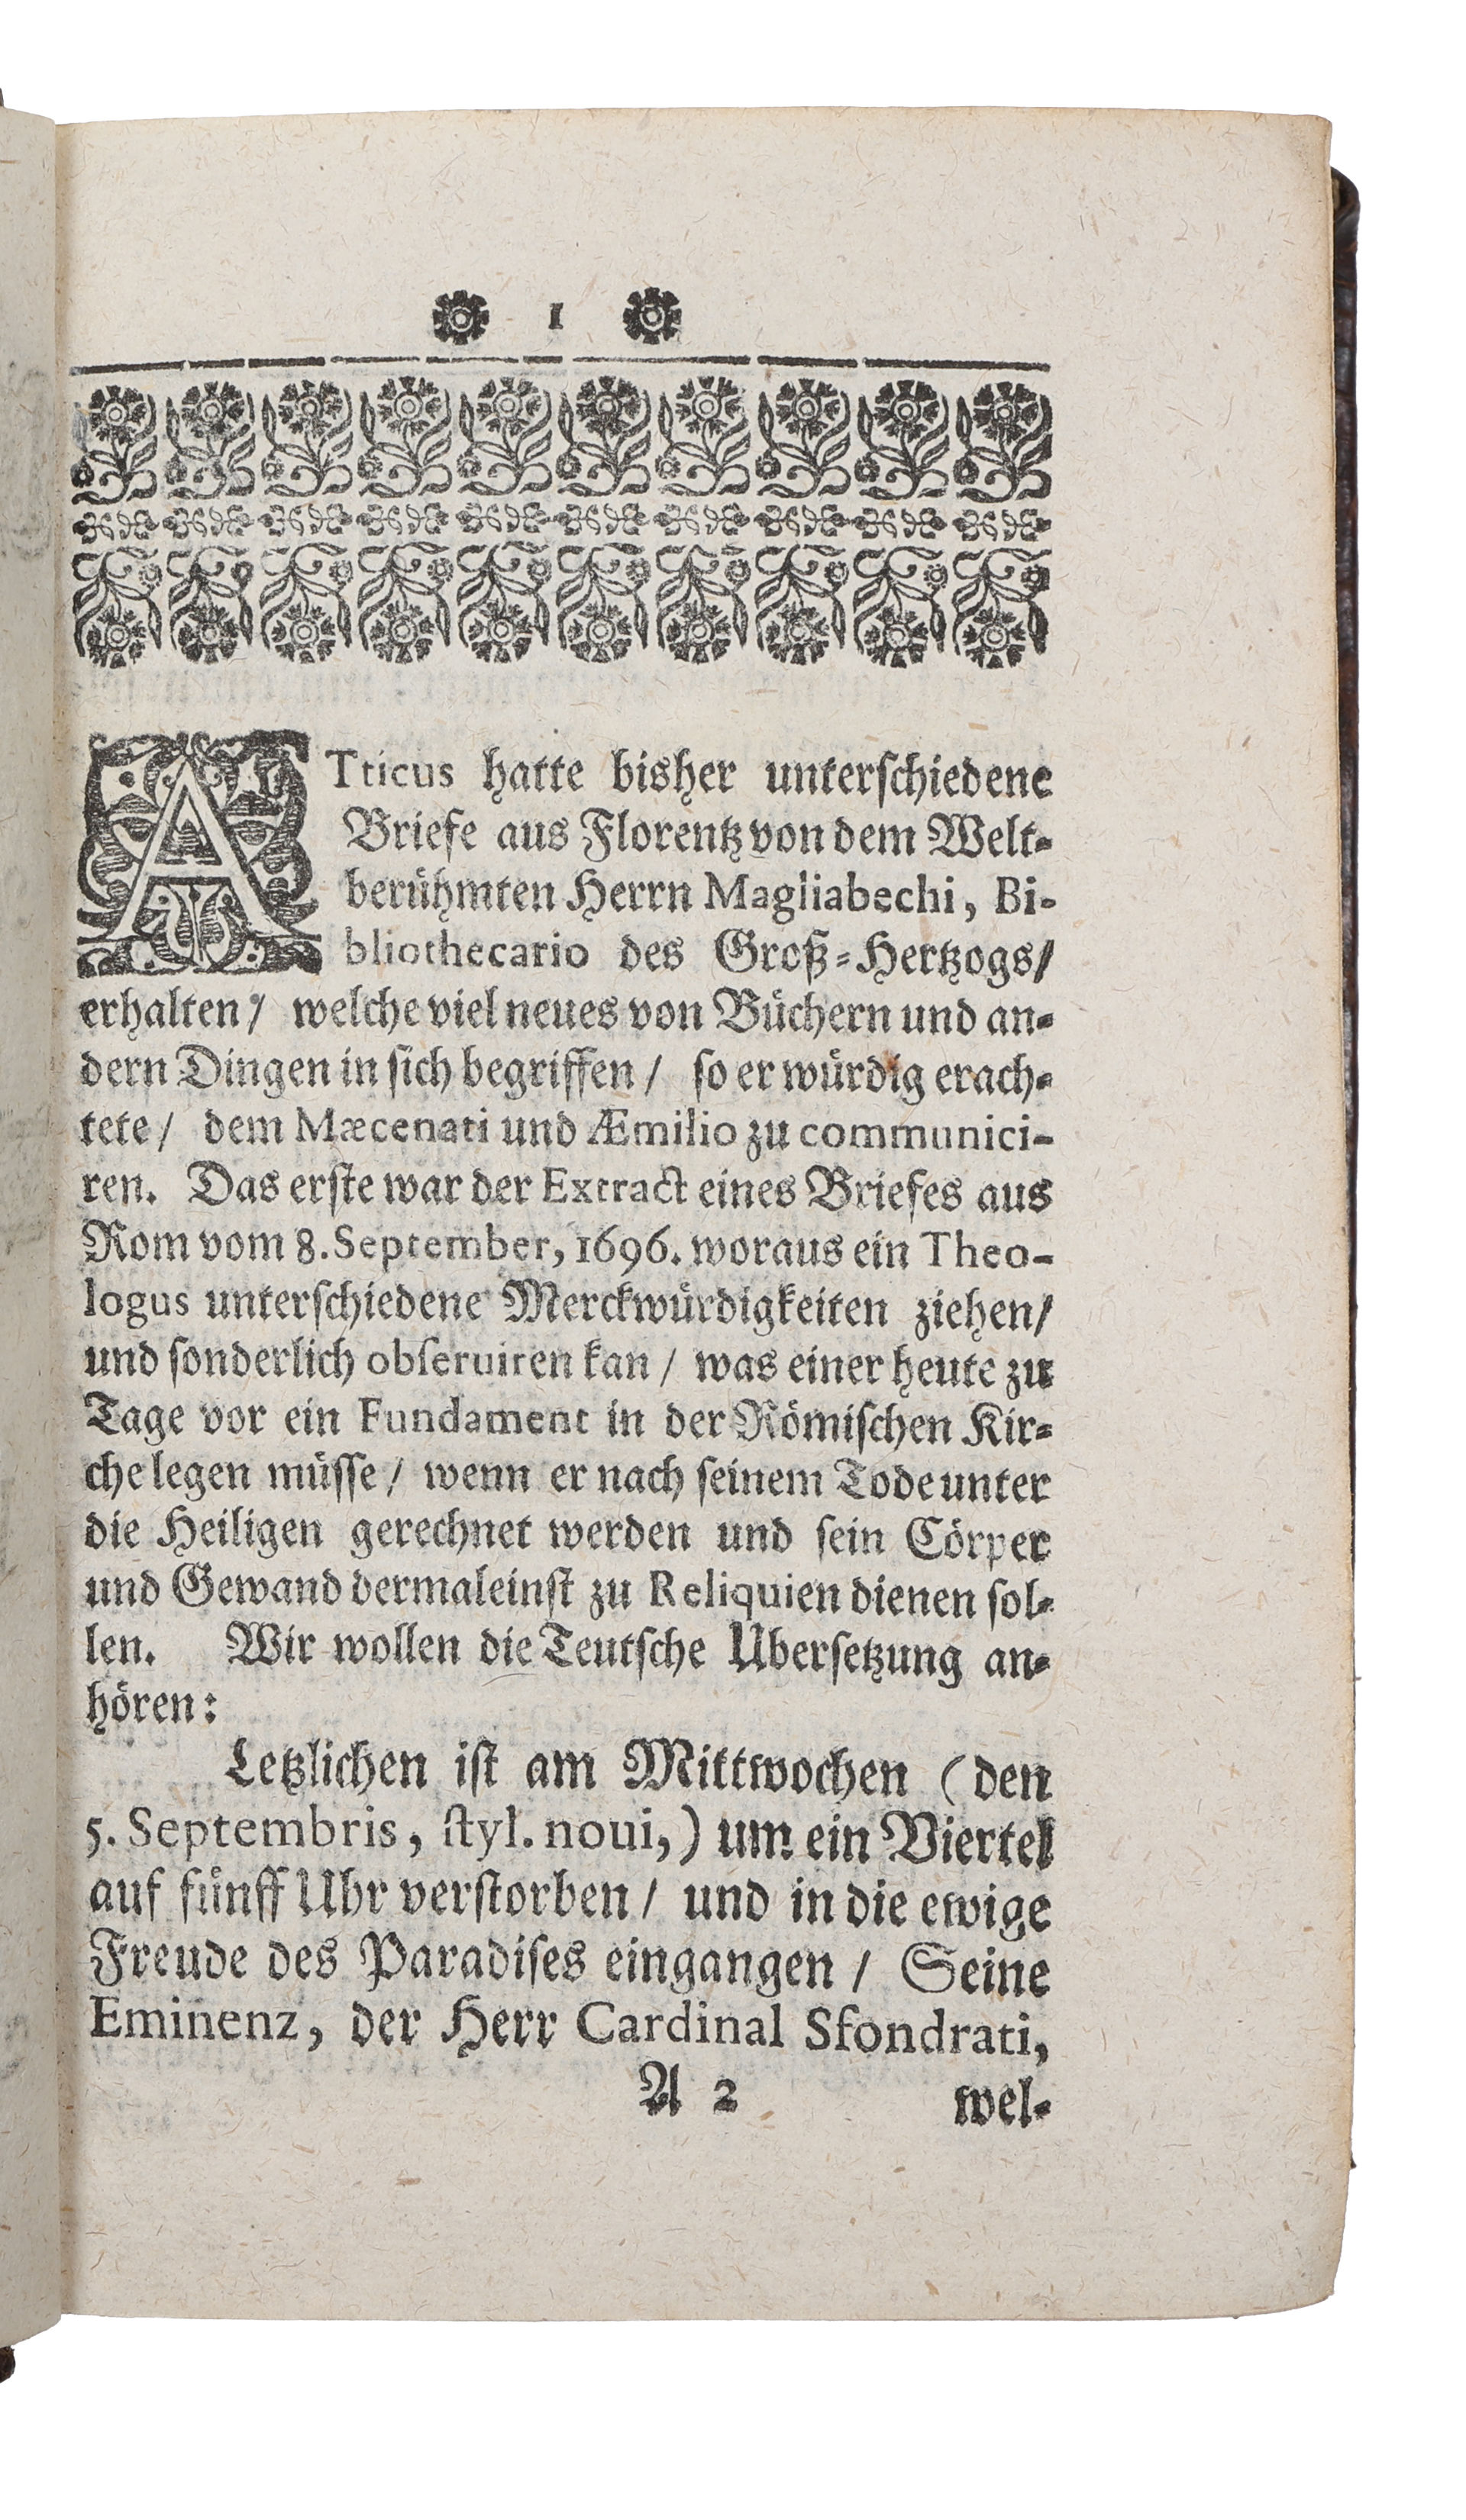 1
ATticus hatte bisher unterſchiedene
Briefe aus Florentz von dem Welt-
berühmten Herrn Magliabechi, Bi-
bliothecario des Groß-Hertzogs/
erhalten/ welche viel neues von Büchern und an-
dern Dingen in ſich begriffen/ ſo er würdig erach-
tete/ dem Mæcenati und Æmilio zu communici-
ren. Das erſte war der Extract eines Briefes aus
Rom vom 8. September, 1696. woraus ein Theo-
logus unterſchiedene Merckwürdigkeiten ziehen/
und ſonderlich obſeruiren kan/ was einer heute zu
Tage vor ein Fundament in der Römiſchen Kir-
che legen müſſe/ wenn er nach ſeinem Tode unter
die Heiligen gerechnet werden und ſein Cörper
und Gewand dermaleinſt zu Reliquien dienen ſol-
len. Wir wollen die Teutſche Uberſetzung an-
hören:
Letzlichen iſt am Mittwochen (den
5. Septembris, ſtyl. noui,) um ein Viertel
auf fünff Uhr verſtorben/ und in die ewige
Freude des Paradiſes eingangen/ Seine
Eminenz, der Herr Cardinal Sfondrati,
A 2 wel-